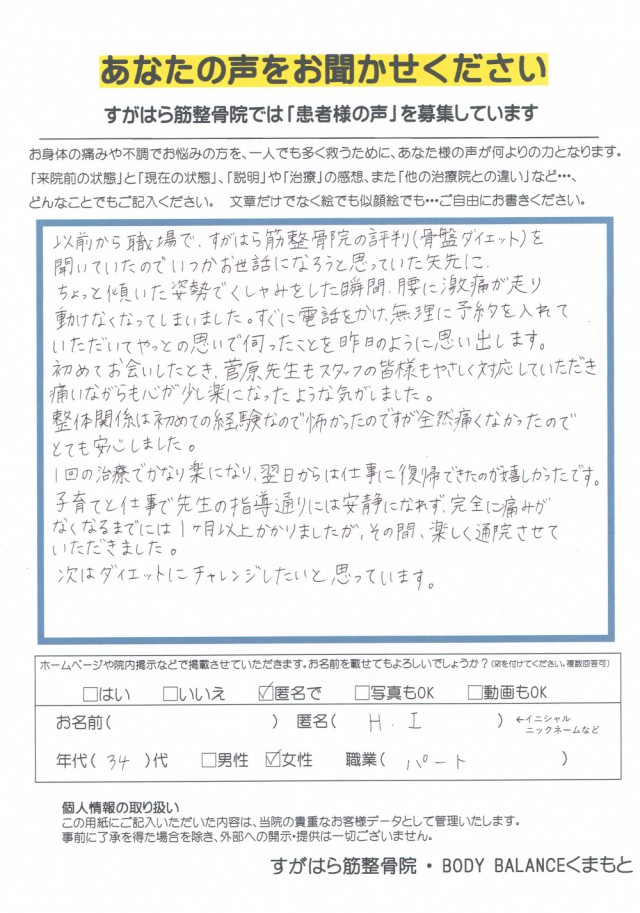 あなたの声をお聞かせください
すがはら筋整骨院では「患者様の声」を募集しています
お身体の痛みや不調でお悩みの方を、一人でも多く救うために、あなた様の声が何よりの力となります。
「来院前の状態」と「現在の状態」、「説明」や「治療」の感想、また「他の治療院との違い」など…、
どんなことでもご記入ください。　文章だけでなく絵でも似顔絵でも…ご自由にお書きください。
以前から職場で、すがはら筋整骨院の評判(骨盤ダイエット)を
聞いていたのでいつかお世話になろうと思っていた矢先に、
ちょっと傾いた姿勢でくしゃみをした瞬間、腰に激痛が走り
動けなくなってしまいました。すぐに電話をかけ、無理に予約を入れて
いただいてやっとの思いで伺ったことを昨日のように思い出します。
初めてお会いしたとき、菅原先生もスタッフの皆様もやさしく対応していただき
痛いながらも心が少し楽になったような気がしました。
整体関係は初めての経験なので怖かったのですが全然痛くなかったので
とても安心しました。
1回の治療でかなり楽になり、翌日からは仕事に復帰できたのが嬉しかったです。
子育てと仕事で先生の指導通りには安静になれず、完全に痛みが
なくなるまでには1ヶ月以上かかりましたが、その間、楽しく通院させて
いただきました。
次はダイエットにチャレンジしたいと思っています。
ホームページや院内掲示などで掲載させていただきます。お名前を載せてもよろしいでしょうか？(☑を付けてください。複数回答可)
□はい　□いいえ　☑匿名で　□写真もOK　□動画もOK
お名前(　　　)　匿名(　H.I　)　←イニシャル
ニックネームなど
年代(34)代　□男性　☑女性　職業(　パート　)
個人情報の取り扱い
この用紙にご記入いただいた内容は、当院の貴重なお客様データとして管理いたします。
事前に了承を得た場合を除き、外部への開示・提供は一切ございません。
すがはら筋整骨院・BODY BALANCEくまもと